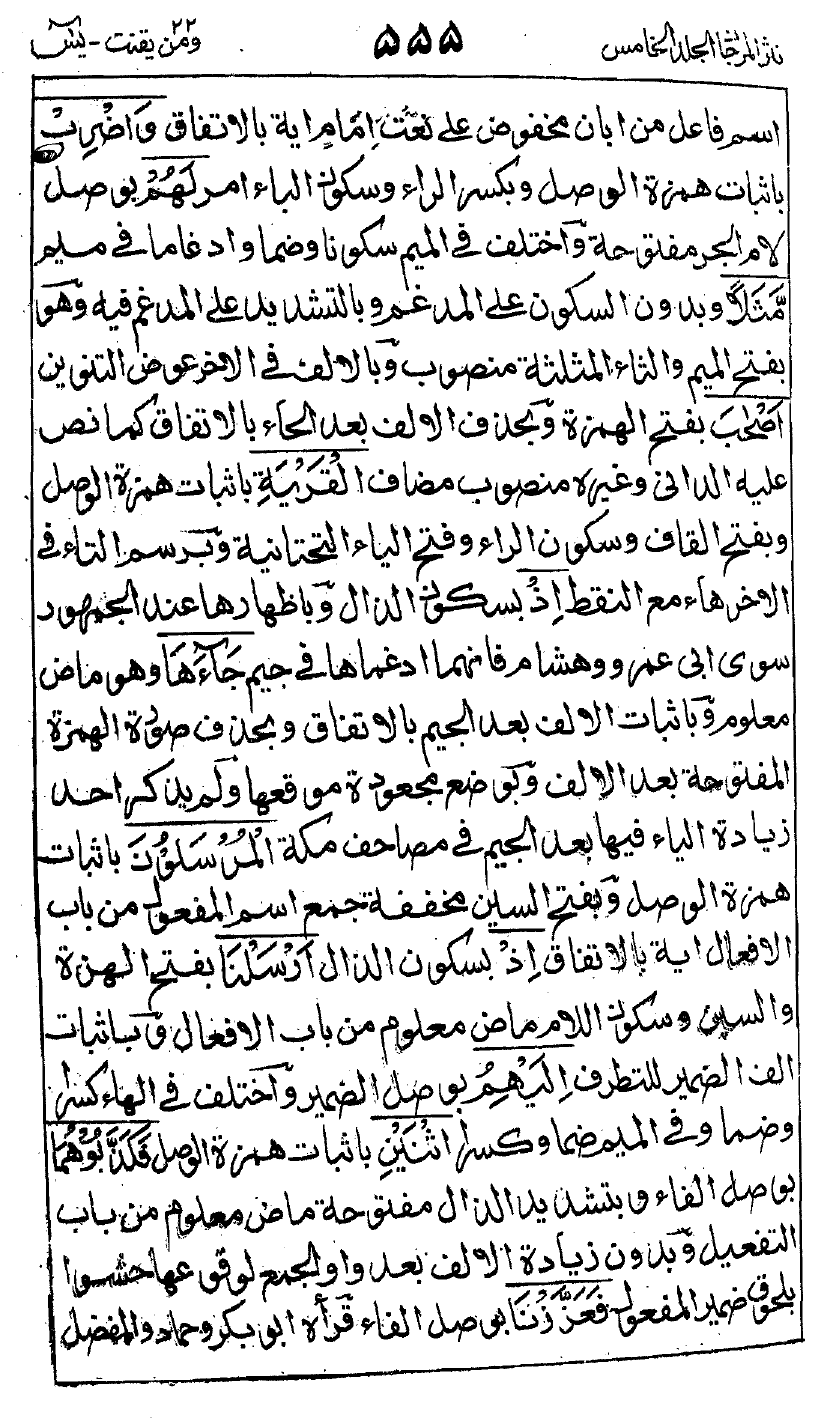 نثر المرجان الجلد الخامس ٥٥٥ ومن يقنت ٢٢ - يٰسٓ
اسم فاعل من ابان مخفوض على نعت اِمَامٍ اية بالاتفاق وَاضْرِبْ
باثبات همزة الوصل وبكسر الراء وسكون الباء امر لَهُمْ بوصل
لام الجر مفتوحة وٓاختلف في الميم سكونا وضما وادغاما في ميم
مَّثَلًا وبدون السكون على المدغم وبالتشديد على المدغم فيه وٓهو
بفتح الميم والثاء المثلثة منصوب وٓبالالف في الاخر عوض التنوين
اَصْحٰبَ بفتح الهمزة وٓبحذف الالف بعد الحاء بالاتفاق كما نص
عليه الداني وغيره منصوب مضاف الْقَرْيَةِ باثبات همزة الوصل
وبفتح القاف وسكون الراء وفتح الياء التحتانية وٓبرسم التاء في
الاخر هاء مع النقط اِذْ بسكون الذال وٓباظهارها عند الجمهور
سوى ابى عمرو وهشام فانهما ادغماها في جيم جَآءَهَا وهو ماض
معلوم وٓباثبات الالف بعد الجيم بالاتفاق وبحذف صورة الهمزة
المفتوحة بعد الالف وٓبوضع مجعودة موقعها وٓلم يذكر احد
زيادة الياء فيها بعد الجيم في مصاحف مكة الْمُرْسَلُوْنَ باثبات
همزة الوصل وٓبفتح السين مخففة جمع اسم المفعول من باب
الافعال اية بالاتفاق اِذْ بسكون الذال اَرْسَلْنَا بفتح الهمزة
والسين وسكون اللام ماض معلوم من باب الافعال وٓباثبات
الف الضمير للتطرف اِلَيْهِمُ بوصل الضمير وٓاختلف في الهاء كسرا
وضما وفي الميم ضما وكسرا اثْنَيْنِ باثبات همزة الوصل فَكَذَّبُوْهُمَا
بوصل الفاء وبتشديد الذال مفتوحة ماض معلوم من باب
التفعيل وٓبدون زيادة الالف بعد واو الجمع لوقوعها حشوا
بلحوق ضمير المفعول فَعَزَّزْنَا بوصل الفاء قٓرأه ابو بكر وحماد والمفضل